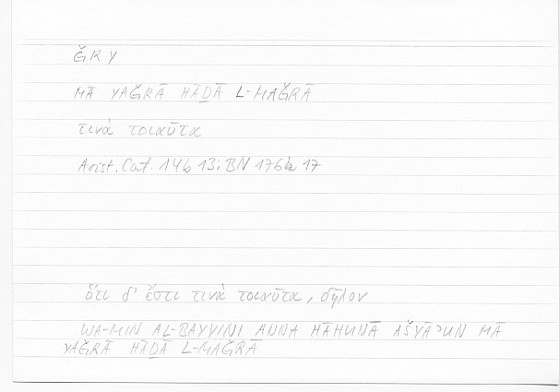 ǦRY
MĀ YAǦRĀ HĀḎĀ L-MAǦRĀ
τινὰ τοιαῦτα
Arist. Cat. 14b 13; BN 176b 17
ὅτι δ' ἔστι τινὰ τοιαῦτα, δῆλον
WA-MIN AL-BAYYINI ANNA HĀHUNĀ AŠYĀʾUN MĀ
YAǦRĀ HĀḎĀ L-MAǦRĀ